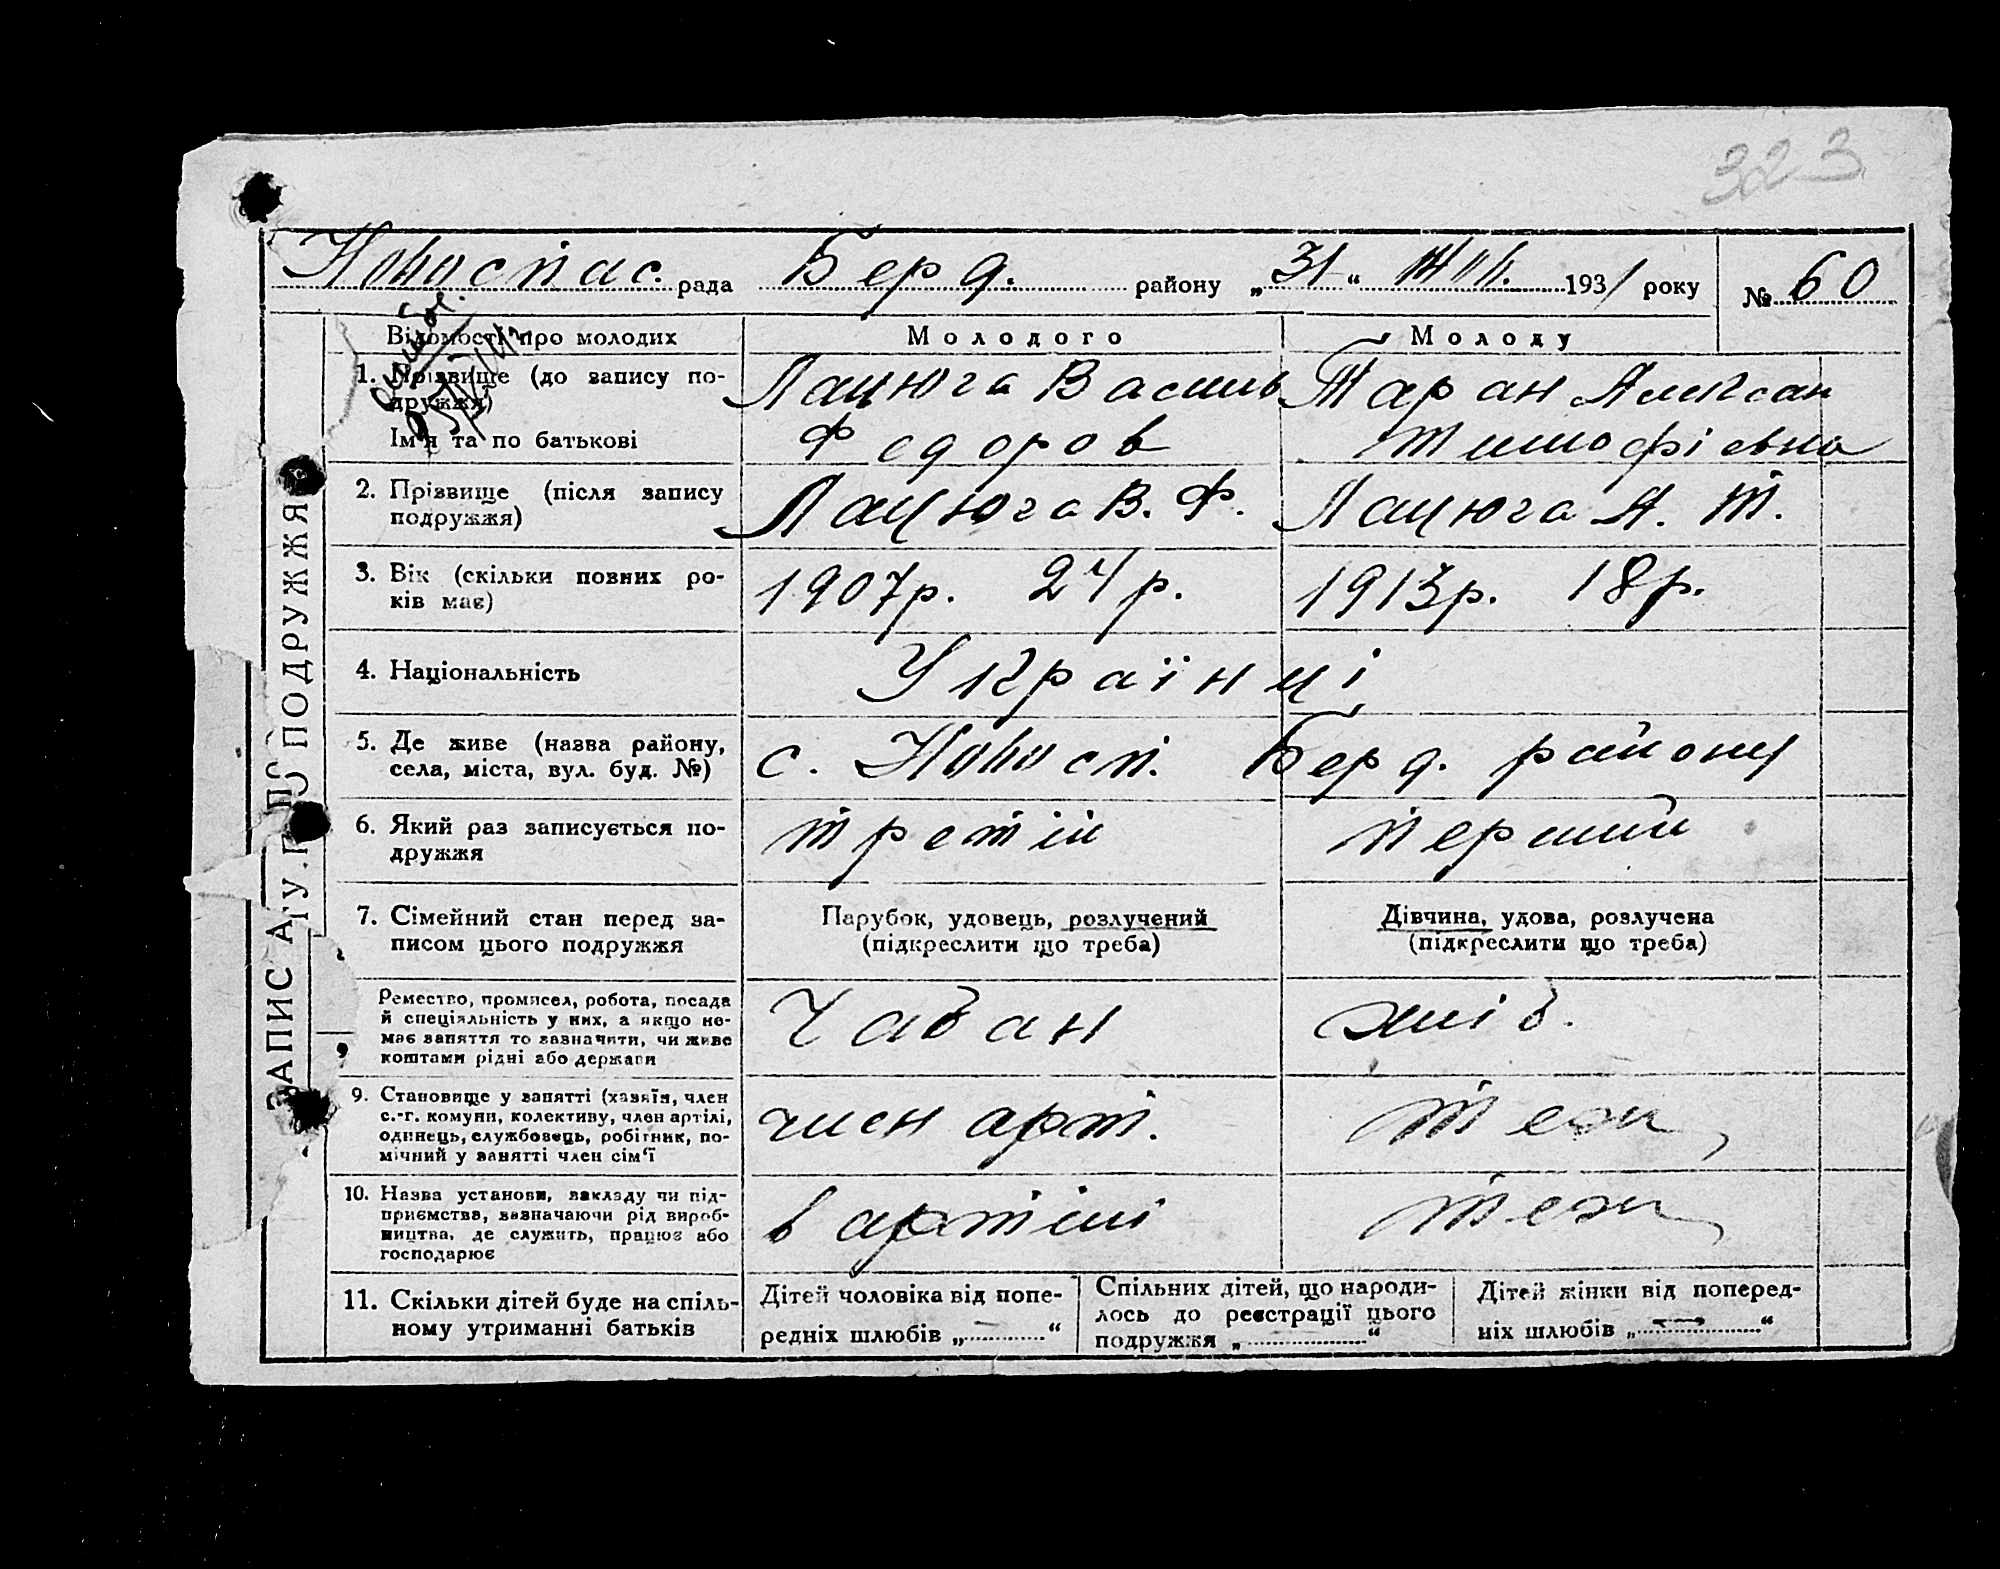 323
Новоспас. рада Берд. району „31“ 1931 року № 60
ЗАПИС АКТУ ПРО ПОДРУЖЖЯ
Відомості про молодих Молодого Молоду
1. Прізвище (до запису по-
дружжя)
Ім'я та по батькові
Лацюга Василь
Федоров
Таран Алексан
Тимофієвна
2. Прізвище (після запису
подружжя)
Лацюга В. Ф. Лацюга А. Т.
3. Вік (скільки повних ро-
ків має)
1907р. 24р. 1913р. 18р.
4. Національність Українці
5. Де живе (назва району,
села, міста, вул. буд. №)
с. Новосп. Берд. району
6. Який раз записується по-
дружжя
третій перший
7. Сімейний стан перед за-
писом цього подружжя
Парубок, удовець, розлучений
(підкреслити що треба)
Дівчина, удова, розлучена
(підкреслити що треба)
Ремество, промисел, робота, посада
й спеціяльність у них, а якщо не-
має заняття то зазначити, чи живе
коштами рідні або держави
Чабан хліб.
9. Становище у занятті (хазяїн, член
с.-г. комуни, колективу, член артілі,
одинець, службовець, робітник, по-
мічний у занятті член сім'ї
член арт. теж
10. Назва установи, закладу чи під-
приємства, зазначаючи рід вироб-
ництва, де служить, працює або
господарює
в артілі теж
11. Скільки дітей буде на спіль-
ному утриманні батьків
Дітей чоловіка від попе-
редніх шлюбів „ — “
Спільних дітей, що народи-
лось до реєстрації цього
подружжя „ “
Дітей жінки від поперед-
ніх шлюбів „ — “